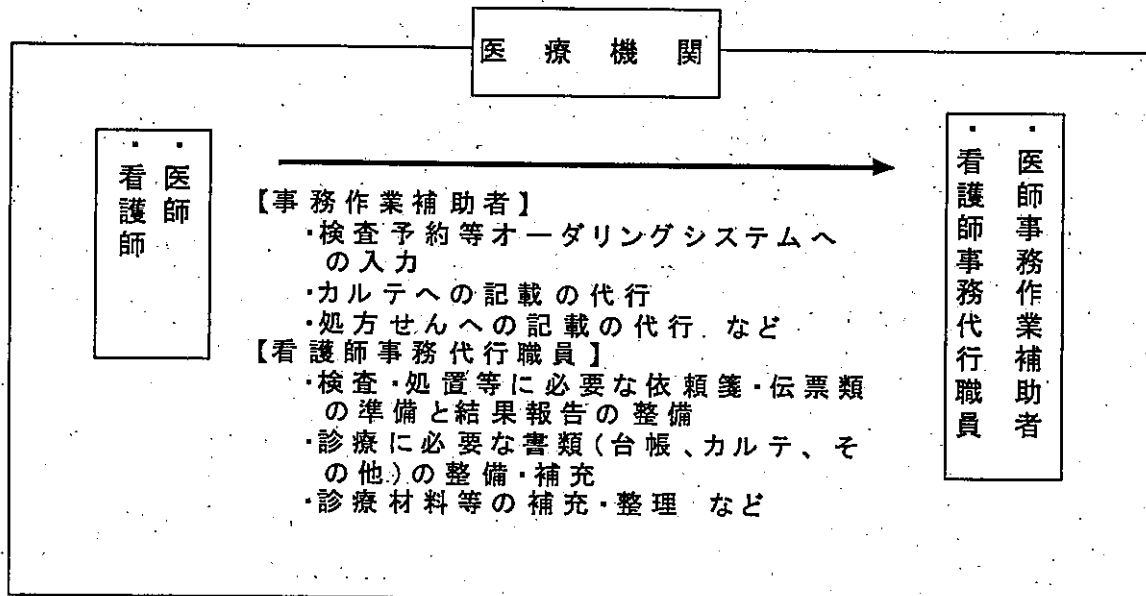 医療機関
・医師
・看護師
【事務作業補助者】
・検査予約等オーダリングシステムへ
の入力
・カルテへの記載の代行
・処方せんへの記載の代行 など
【看護師事務代行職員】
・検査・処置等に必要な依頼箋・伝票類
の準備と結果報告の整備
・診療に必要な書類(台帳、カルテ、そ
の他)の整備・補充
・診療材料等の補充・整理 など
・医師事務作業補助者
・看護師事務代行職員